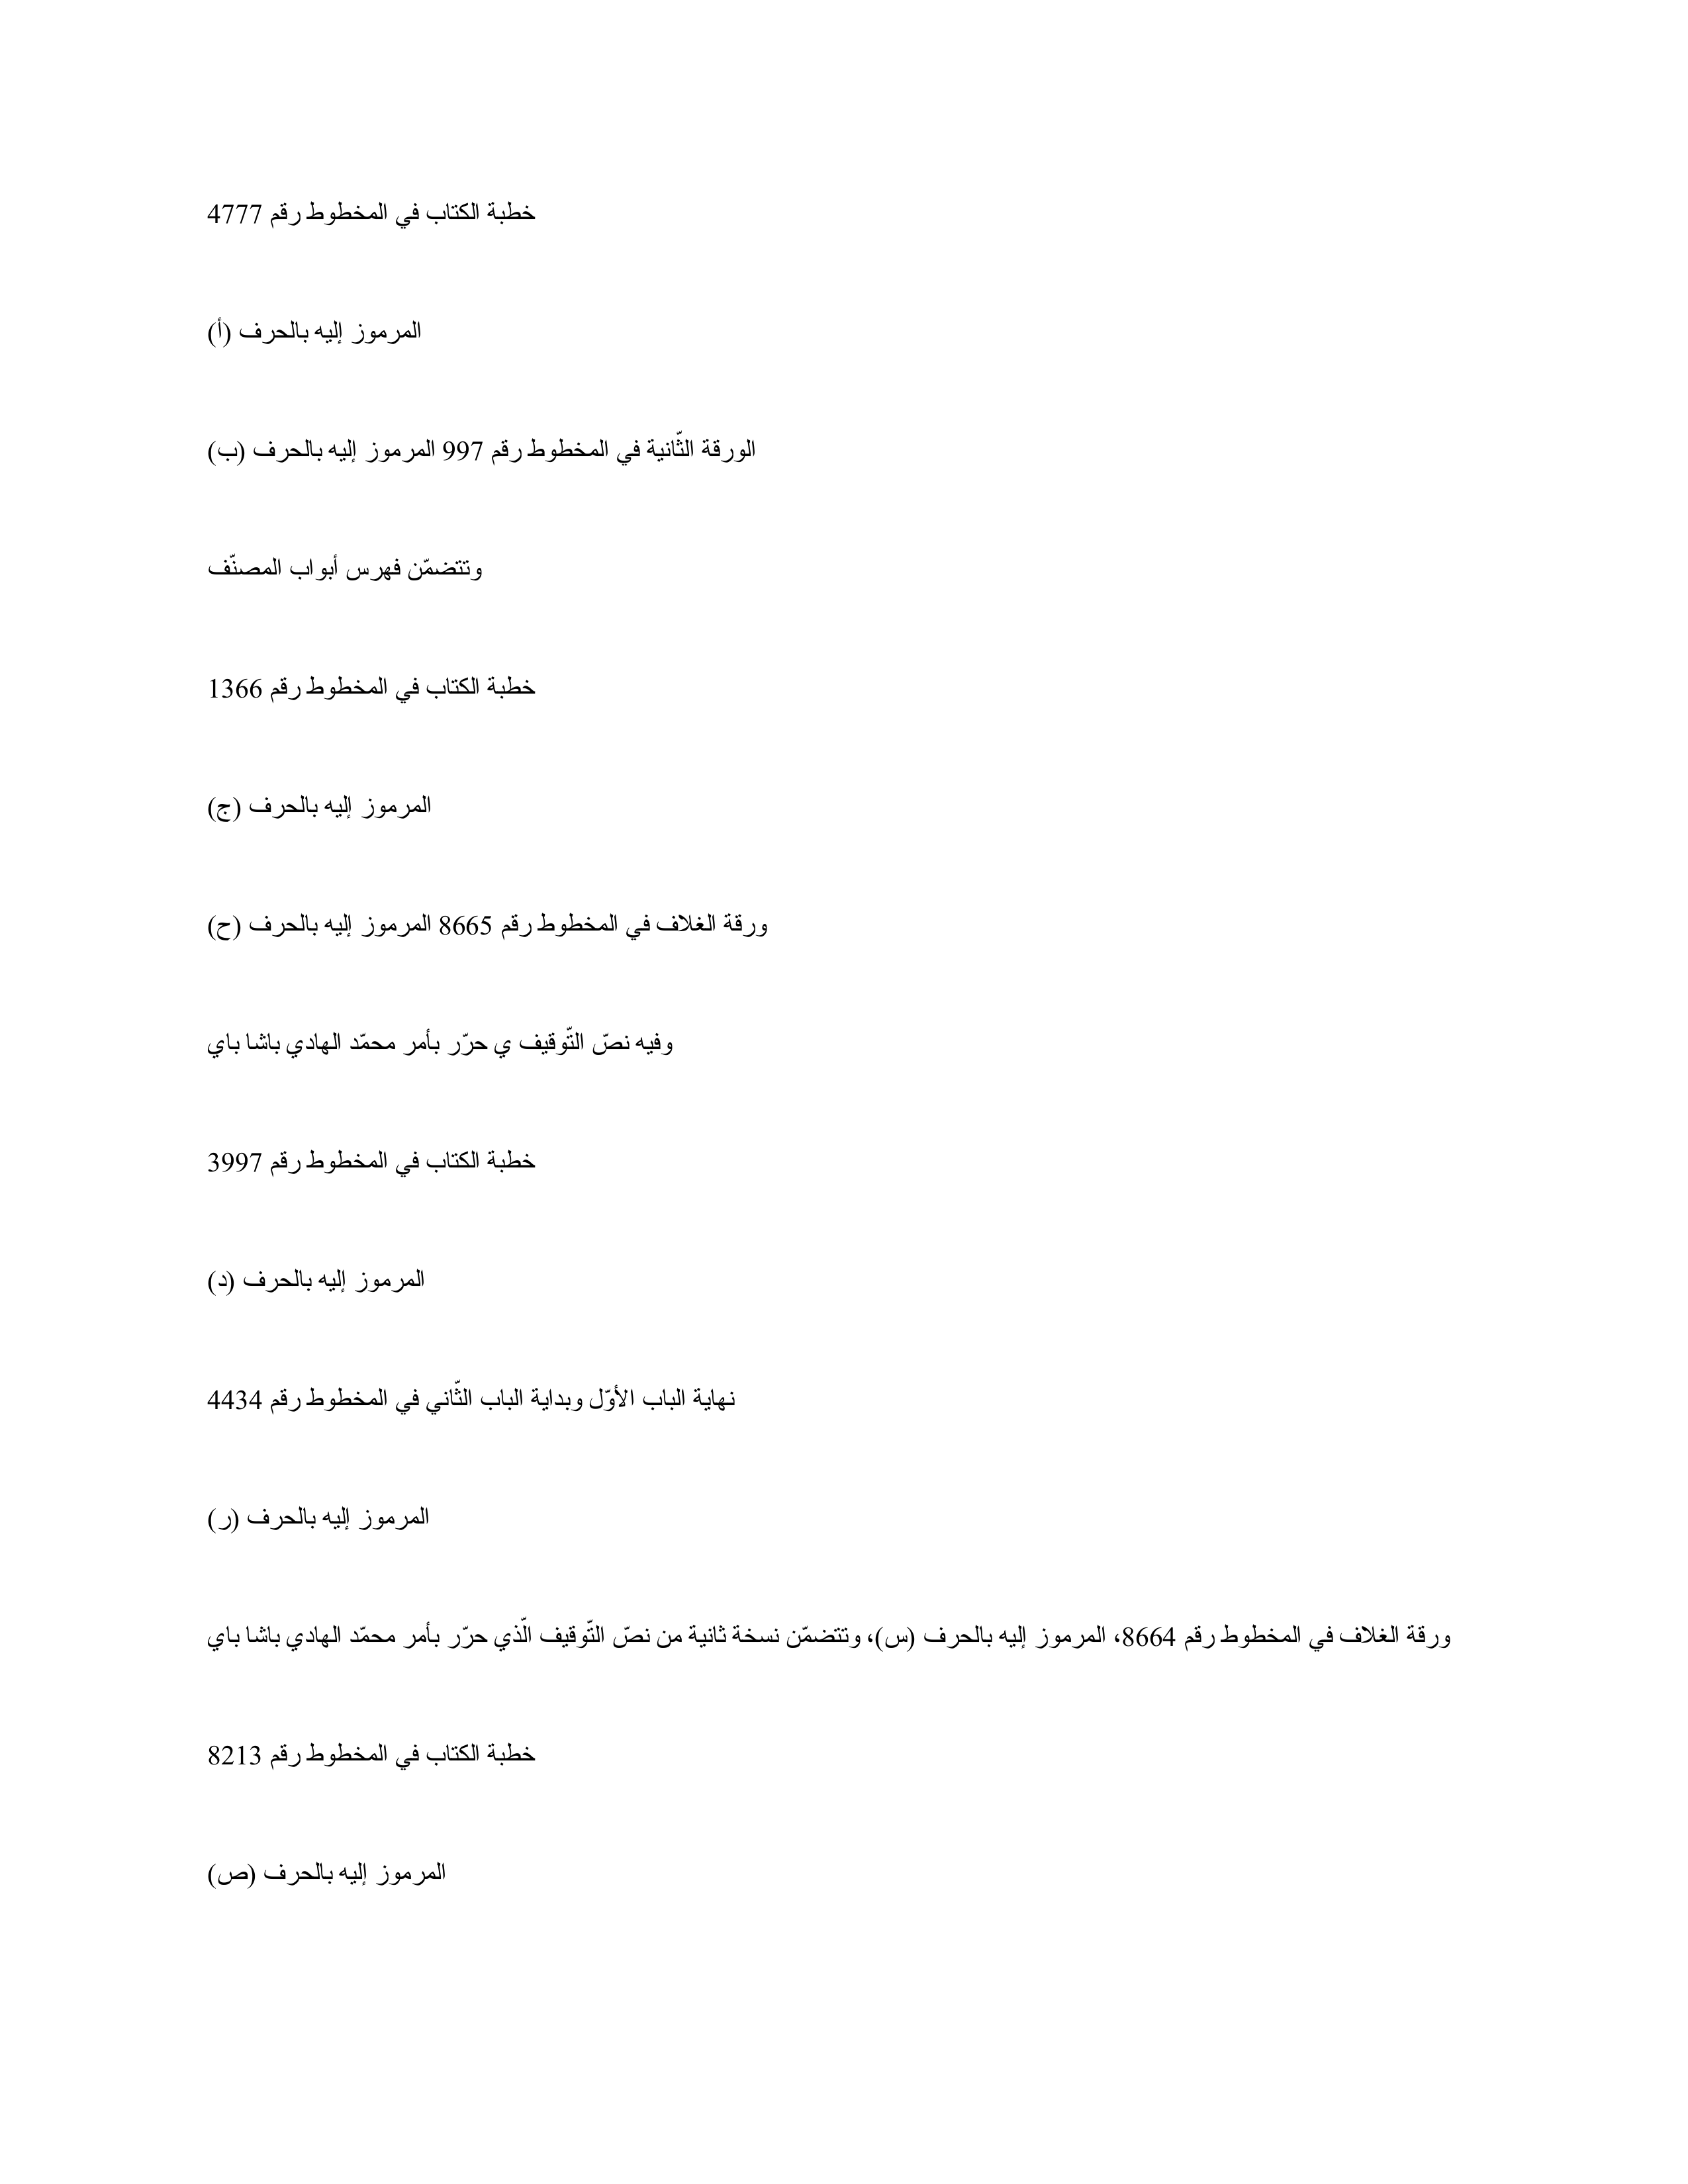 خطبة الكتاب في المخطوط رقم 4777
المرموز إليه بالحرف (أ)
الورقة الثّانية في المخطوط رقم 997 المرموز إليه بالحرف (ب)
وتتضمّن فهرس أبواب المصنّف
خطبة الكتاب في المخطوط رقم 1366
المرموز إليه بالحرف (ج)
ورقة الغلاف في المخطوط رقم 8665 المرموز إليه بالحرف (ح)
وفيه نصّ التّوقيف ي حرّر بأمر محمّد الهادي باشا باي
خطبة الكتاب في المخطوط رقم 3997
المرموز إليه بالحرف (د)
نهاية الباب الأوّل وبداية الباب الثّاني في المخطوط رقم 4434
المرموز إليه بالحرف (ر)
ورقة الغلاف في المخطوط رقم 8664، المرموز إليه بالحرف (س)، وتتضمّن نسخة ثانية من نصّ التّوقيف الّذي حرّر بأمر محمّد الهادي باشا باي
خطبة الكتاب في المخطوط رقم 8213
المرموز إليه بالحرف (ص)